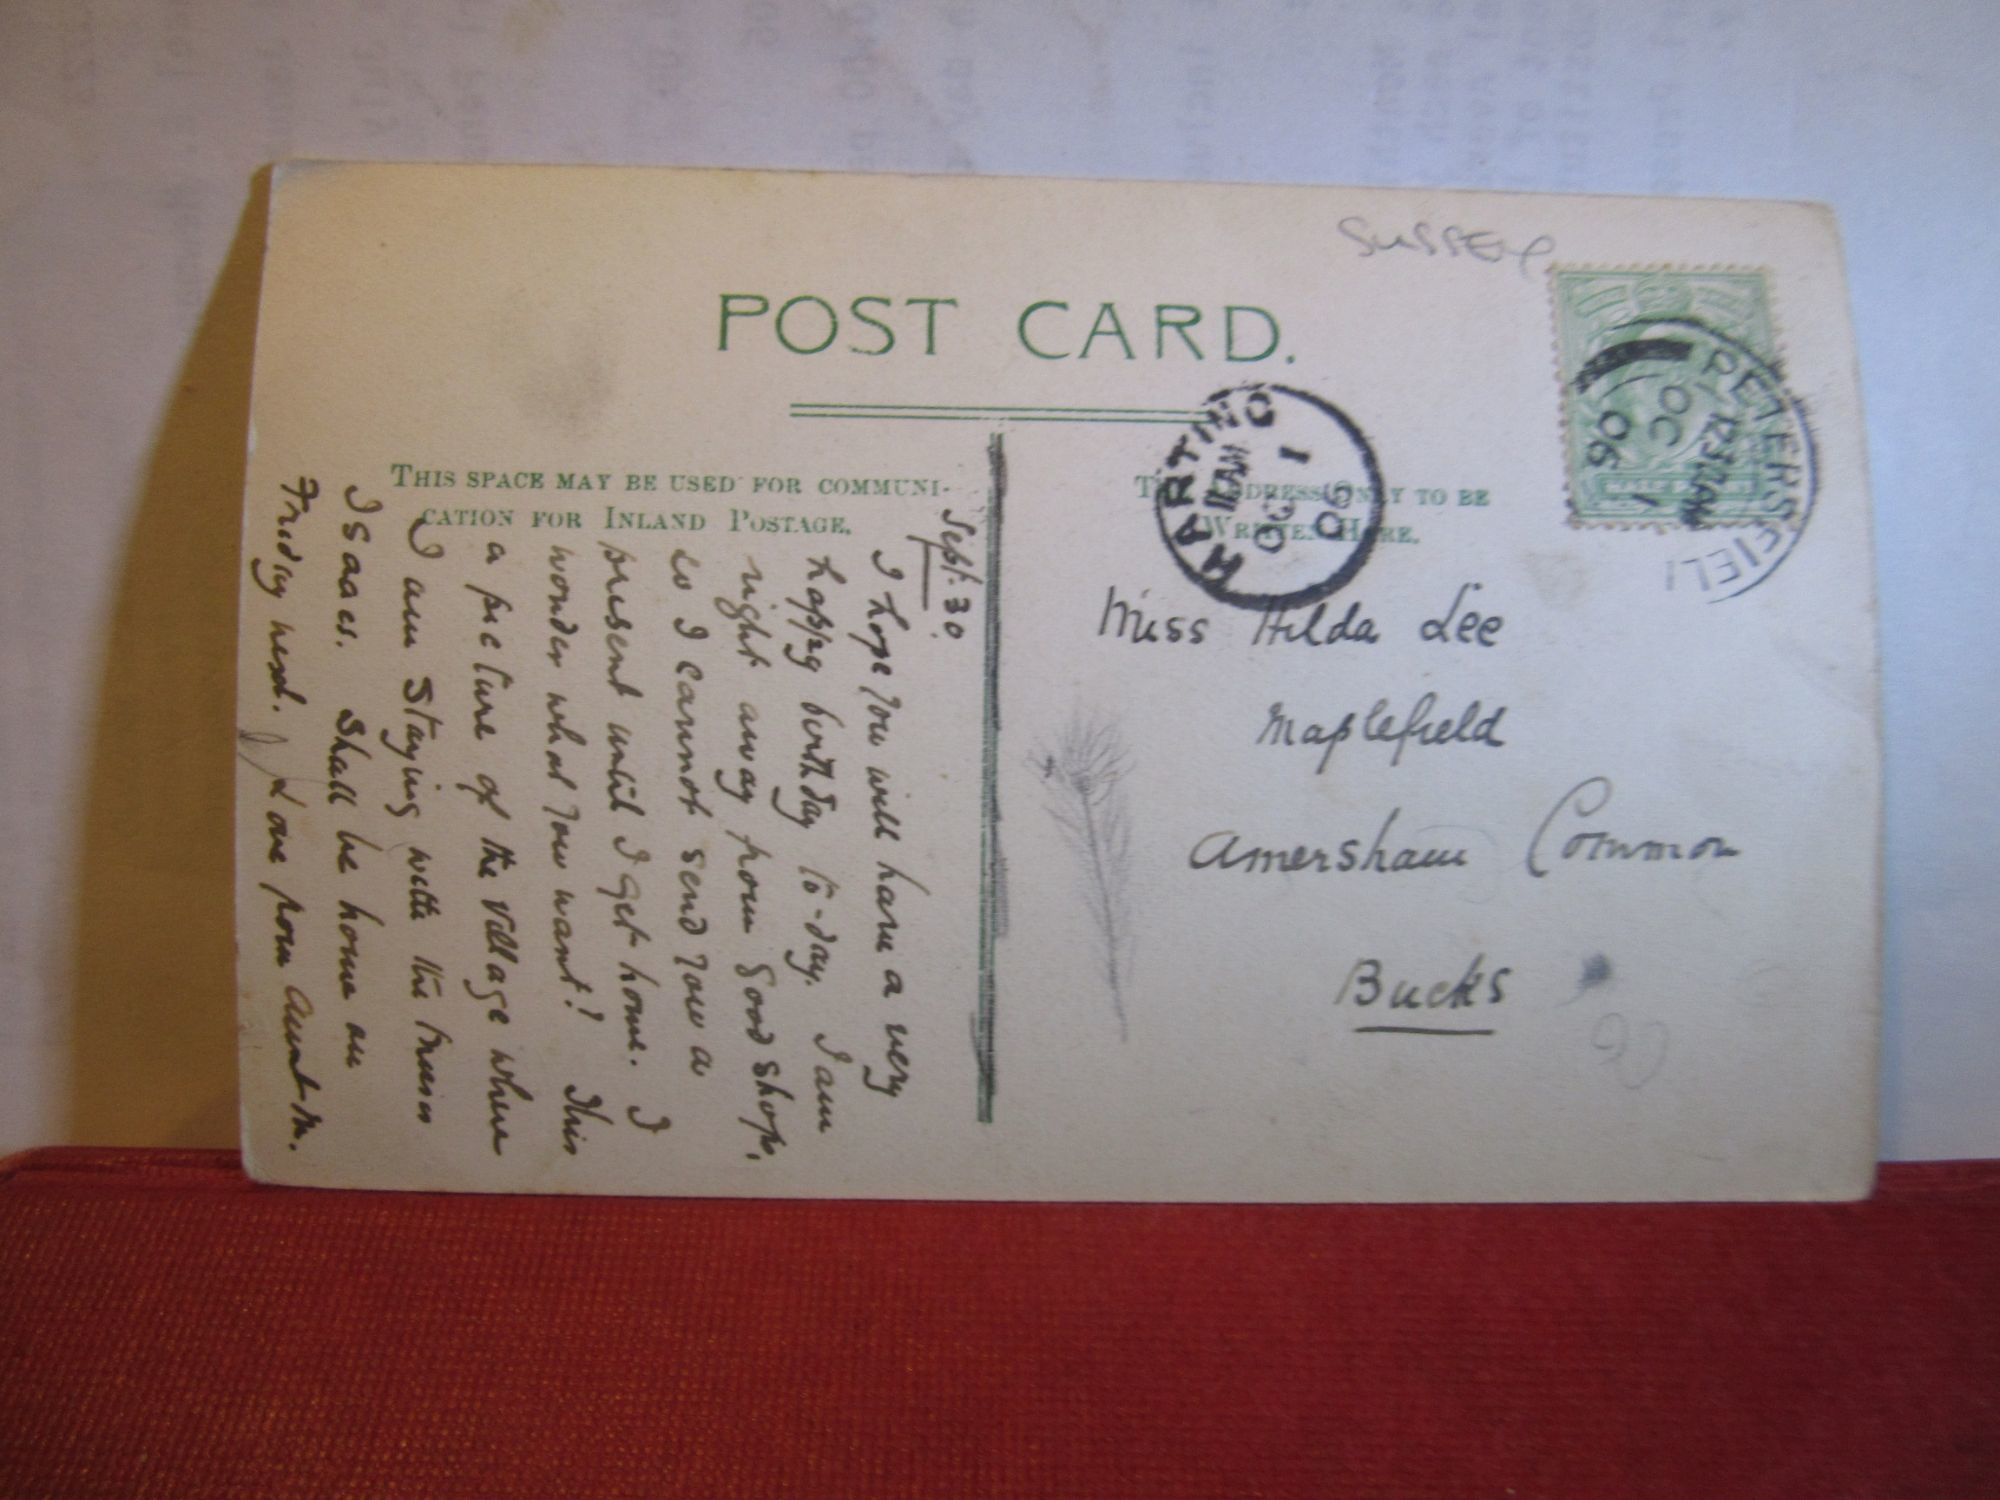 SUSSEX
POST CARD.
THIS SPACE MAY BE USED FOR COMMUNI-
CATION FOR INLAND POSTAGE.
THE ADDRESS ONLY TO BE
WRITTEN HERE.
HARTING
11 AM
OC 1
06
PETERSFIELD
12.37AM
OC 1
06
Miss Hilda Lee
Maplefield
Amersham Common
Bucks
Sept. 30.
I hope you will have a very
happy birthday to-day. I am
right away from good shops,
so I cannot send you a
present until I get home. I
wonder what you want! This
a picture of the village where
I am staying with the Misses
Isaacs. Shall be home on
Friday next. Love from Aunt M.